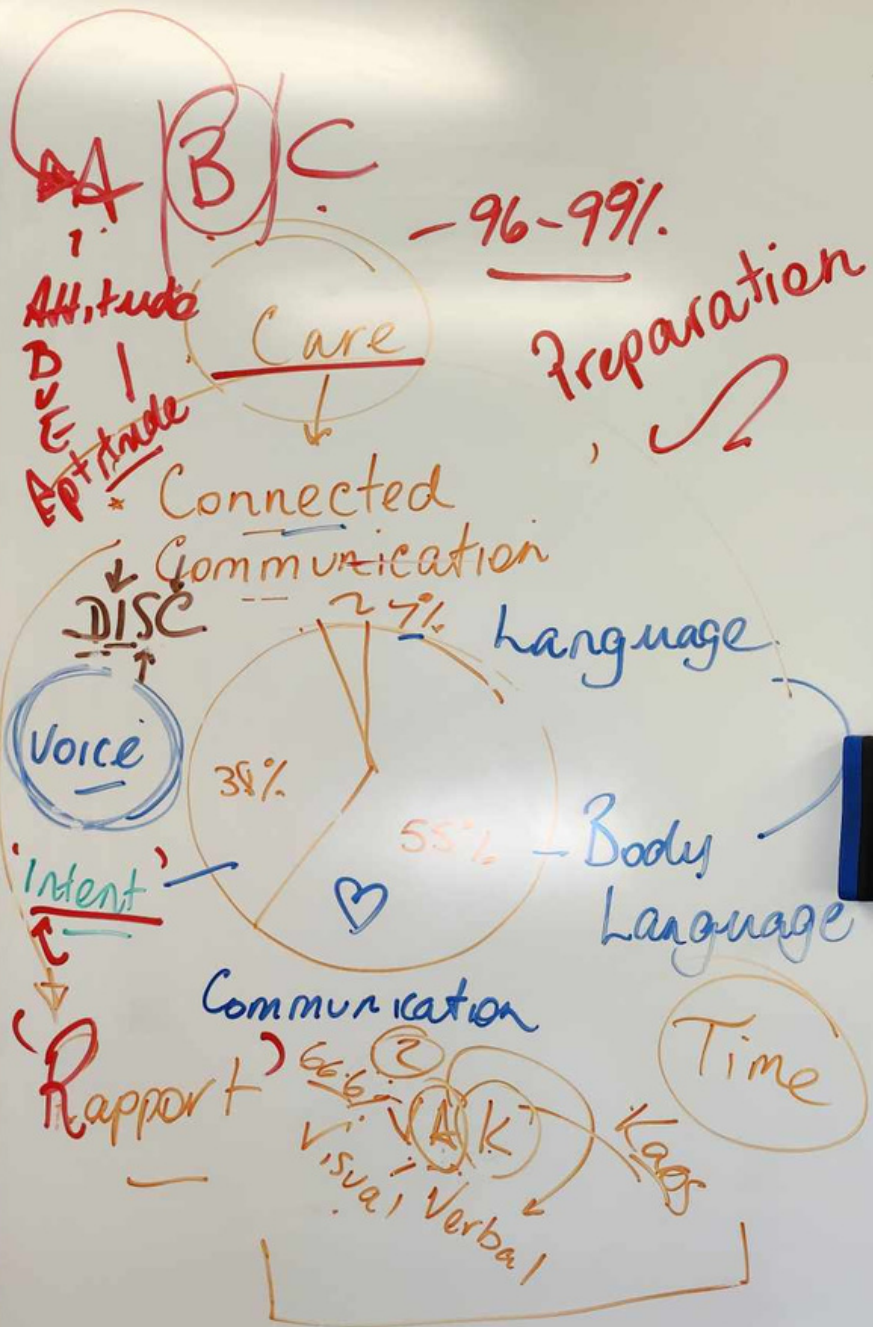 A B C
- 96-99%
Attitude
B
U
E
Aptitude
Care
Preparation
* Connected
Communication
DISC
7%
Language
Voice
38%
55%
Body
Language
'Intent'
Communication
'Rapport'
Time
66.6%
2
V A K
Visual
Verbal